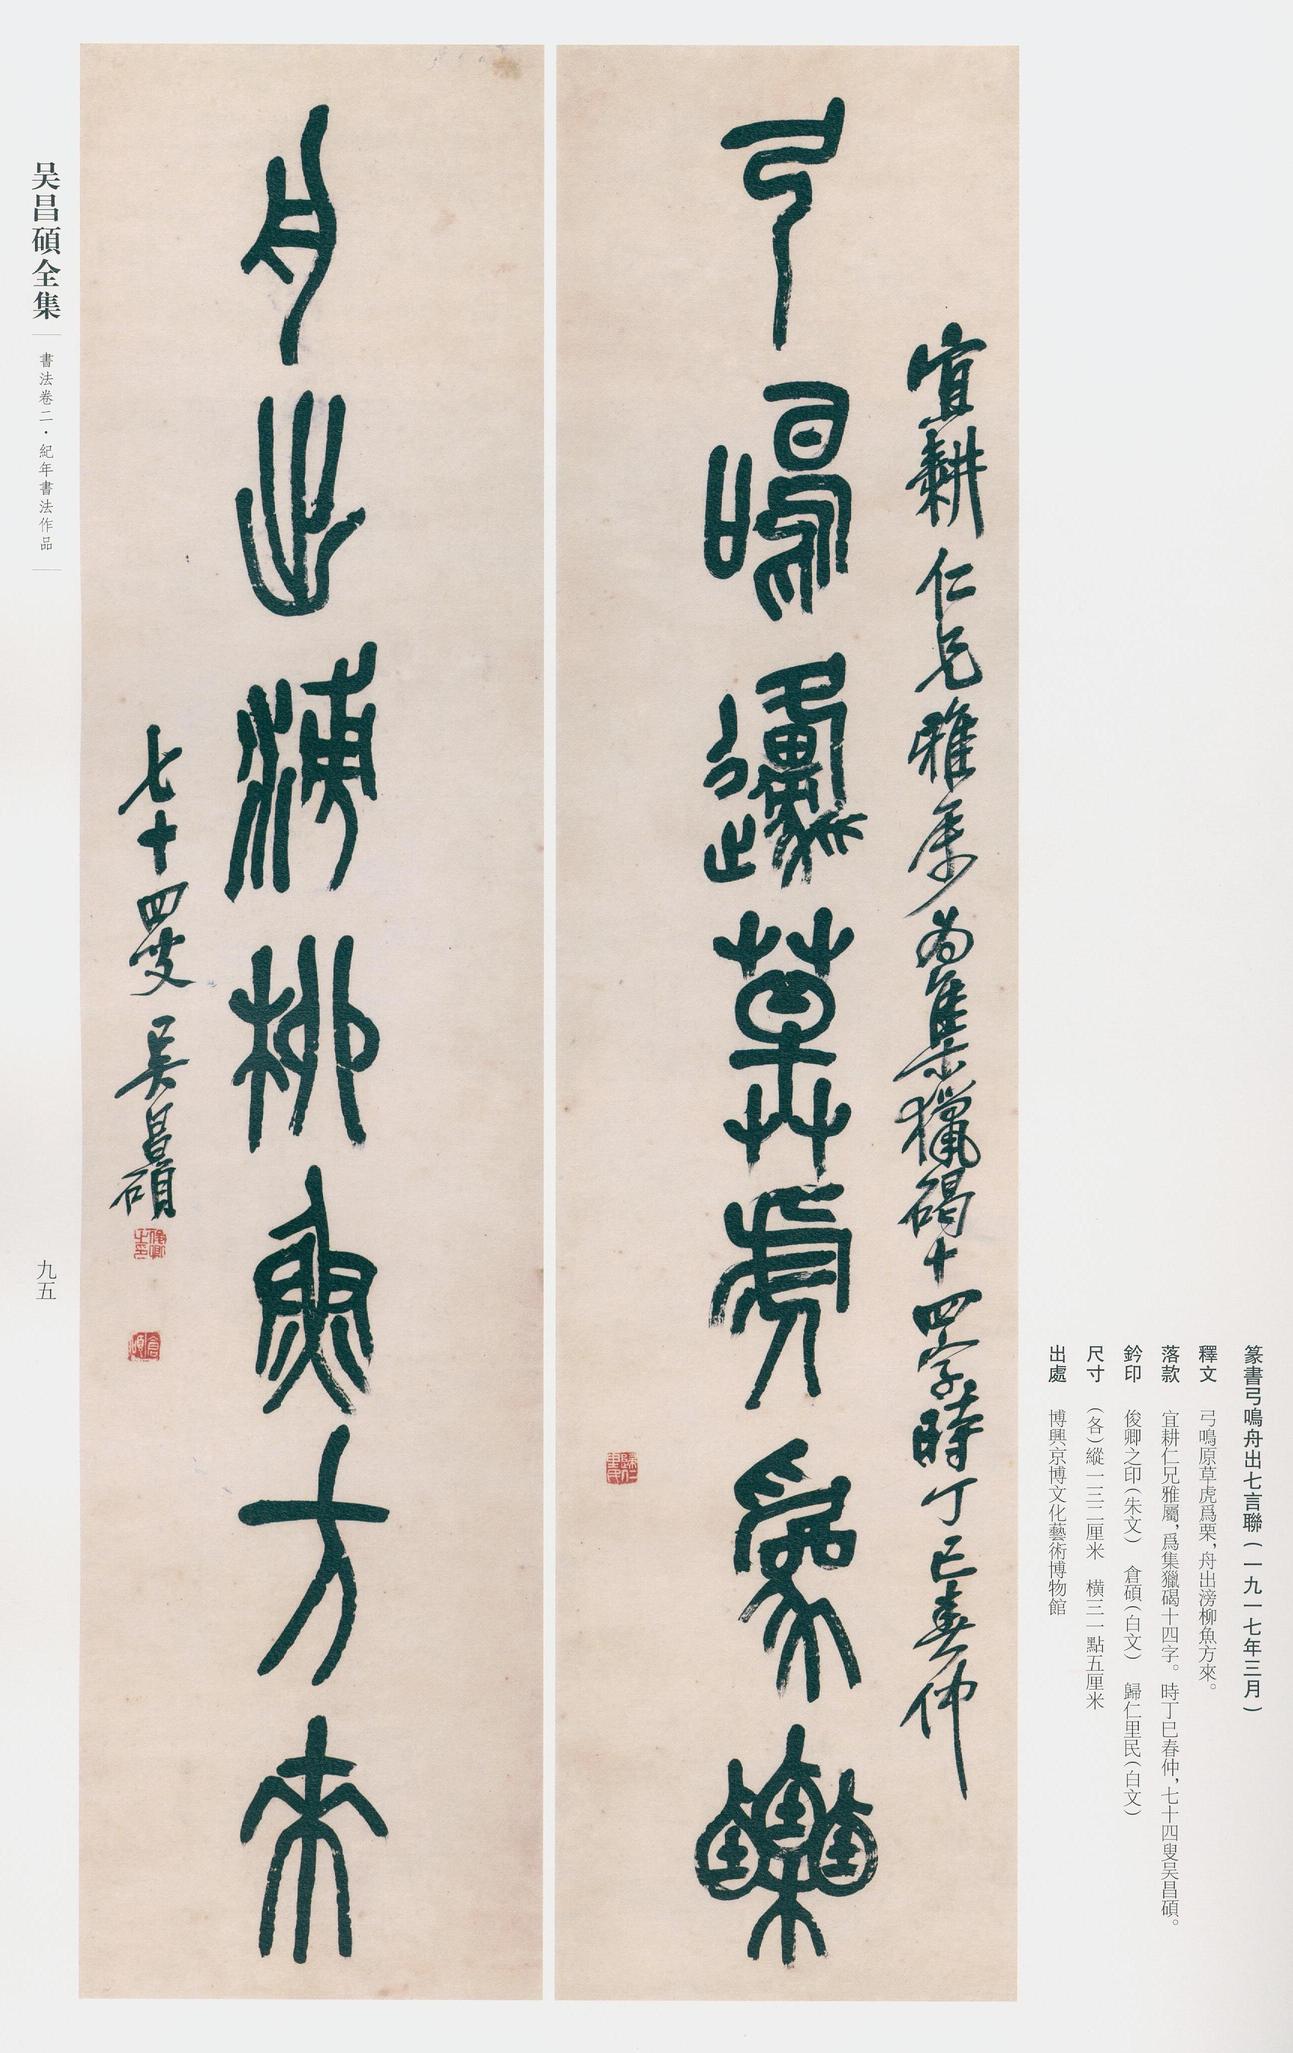 篆書弓鳴舟出七言聯(一九一七年三月)
釋文 弓鳴原草虎爲栗,舟出滂柳魚方來。
落款 宜耕仁兄雅屬,爲集獵碣十四字。時丁巳春仲,七十四叟吴昌碩。
鈐印 俊卿之印(朱文) 倉碩(白文) 歸仁里民(白文)
尺寸 (各)縱一三二厘米 橫三一點五厘米
出處 博興京博文化藝術博物館
宜耕仁兄雅属为集獵碣十四字時丁巳春仲
弓鳴邍草虎爲栗
歸仁里民
舟出滂柳魚方來
七十四叟吴昌碩
俊卿之印
倉碩
吴昌碩全集
書法卷二·紀年書法作品
九五